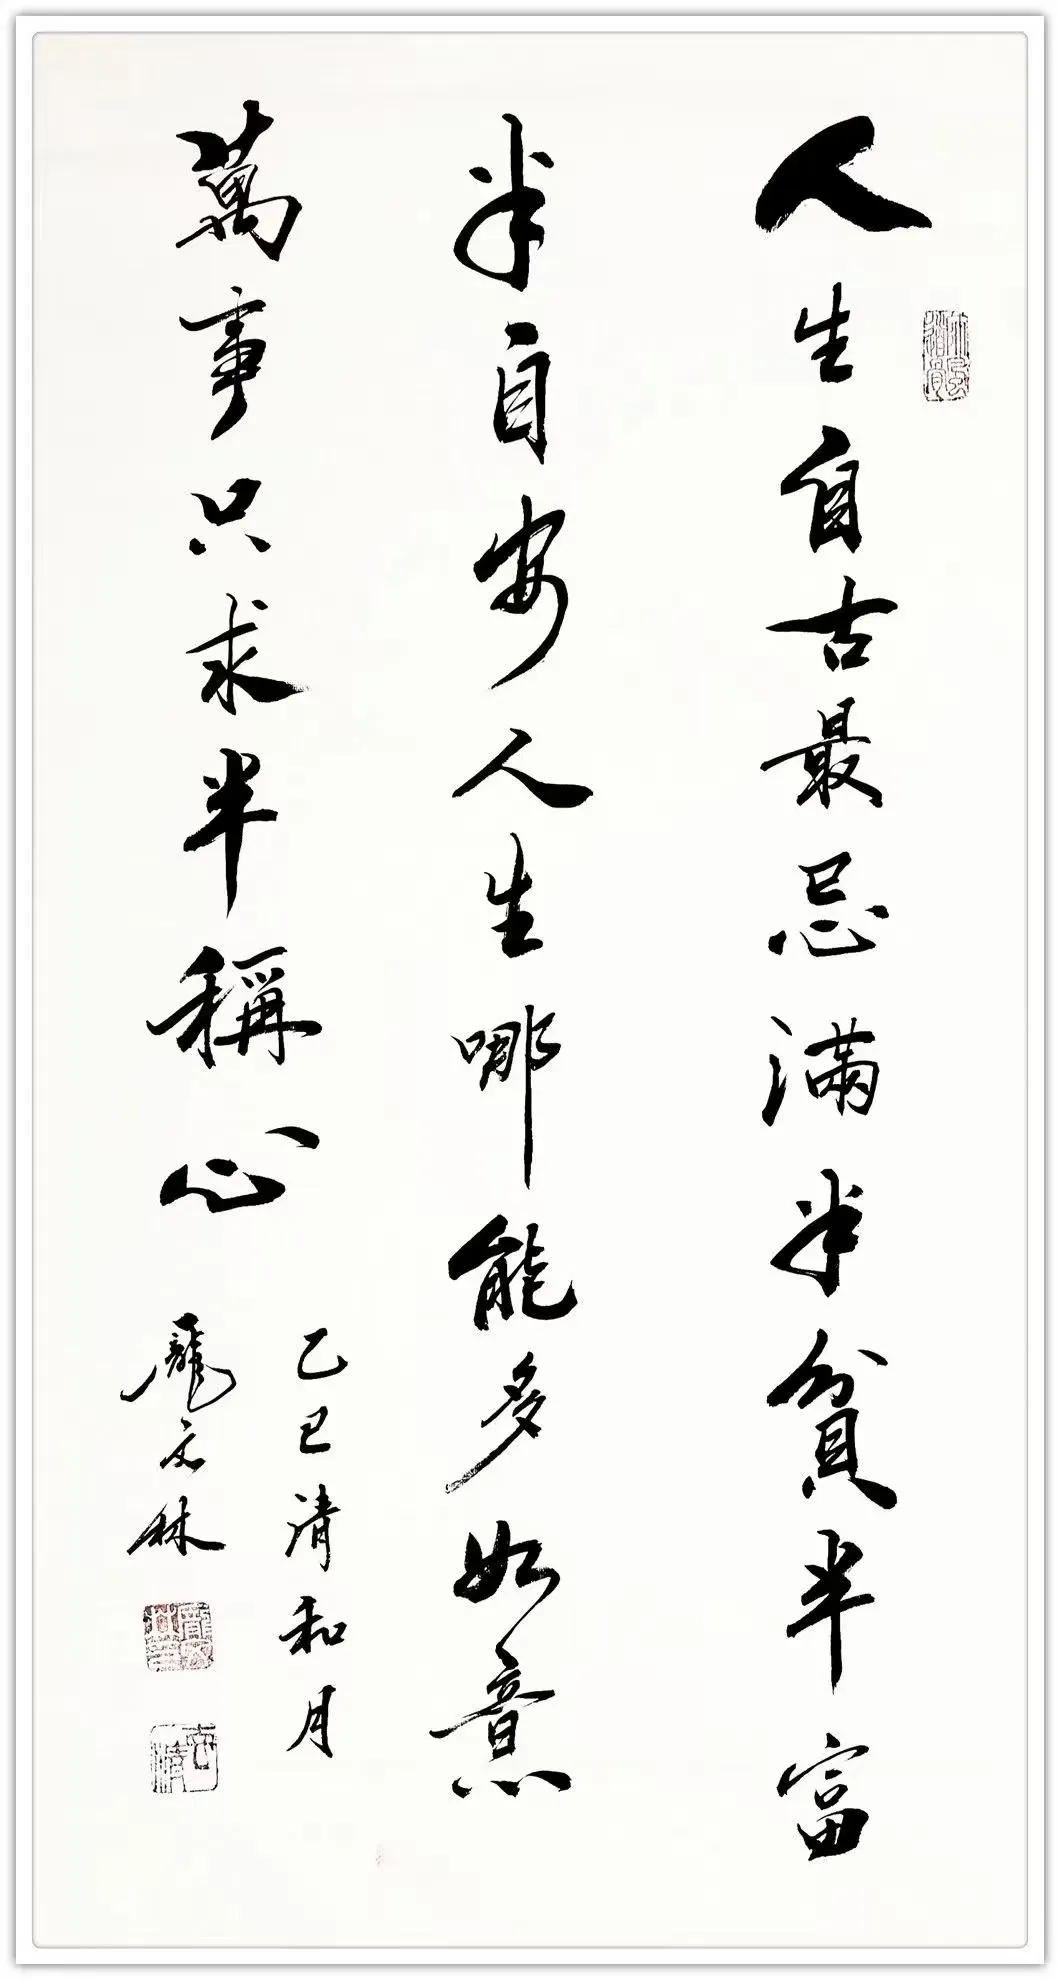 人生自古最忌满半貧半富
半自安人生哪能多如意
萬事只求半稱心
乙巳清和月
龐文林